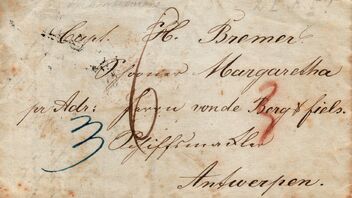 Capt. H. Bremer.
Schooner Margaretha
pr Adr: Herrn von de Berg & fiels.
Schiffsmakler
Antwerpen.
6
3
3